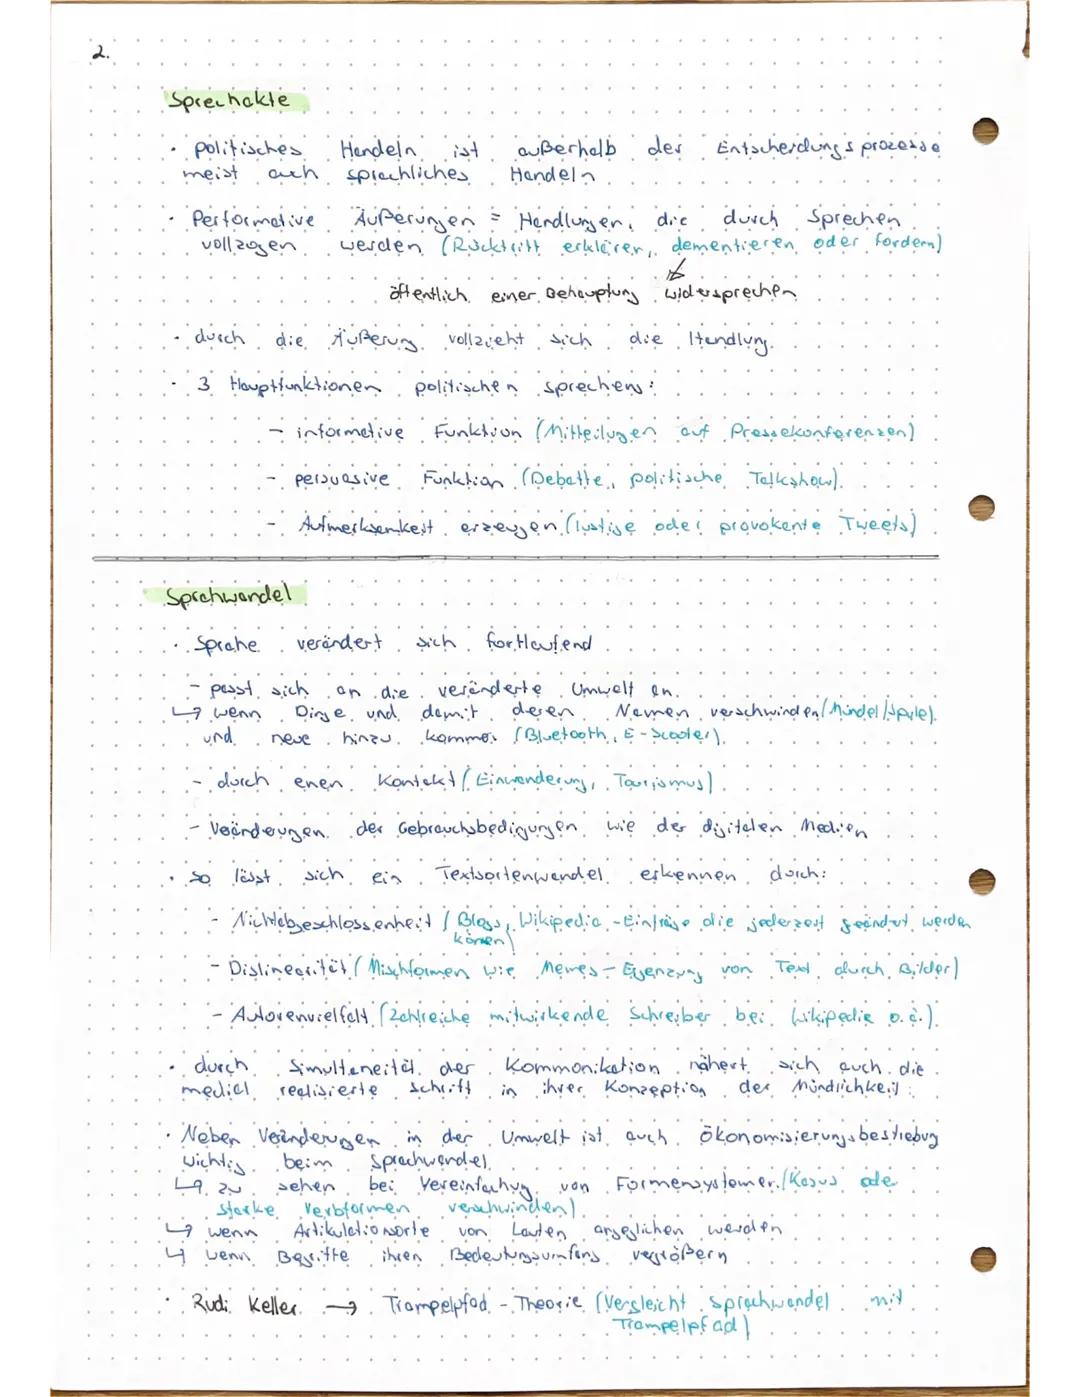 2.
Sprechakte
· politisches Handeln ist außerhalb der Entscheidungsprozesse
meist auch sprachliches Handeln
· Performative Äußerungen = Handlungen, die durch Sprechen
vollzogen werden (Rücktritt erklären, dementieren oder fordern)
öffentlich einer Behauptung widersprechen
· durch die Äußerung vollzieht sich die Handlung.
· 3 Hauptfunktionen politischen sprechens:
- informative Funktion (Mitteilugen auf Pressekonferenzen)
- persuasive Funktion (Debatte, politische Talkshow)
- Aufmerksamkeit erzeugen (lustige oder provokante Tweets)
Sprahwandel
· Sprahe verändert sich fortlaufend
- passt sich an die veränderte Umwelt an
↳ wenn Dinge und damit deren Namen verschwinden (Mündel/Spule)
und neue hinzu kommen (Bluetooth, E-Scooter)
- durch enen Kontakt (Einwanderung, Tourismus)
- Veänderungen der Gebrauchsbedigungen wie der digitalen Medien
· so lässt sich ein Textsortenwandel erkennen durch:
- Nichtabgeschlossenheit (Blogs, Wikipedia-Einträge die jederzeit geändert werden
könen)
- Dislinearität (Mischformen wie Memes - Egenzung von Text durch Bilder)
- Autorenvielfalt (Zahlreiche mitwirkende Schreiber bei Wikipedia o.ä.)
· durch Simultaneität der Kommonikation nähert sich auch die
medial realisierte schrift in ihrer Konzeption der Mündlichkeit
· Neben Veränderugen in der Umwelt ist auch ökonomisierungsbestrebug
wichtig beim Sprachwandel
↳ zu sehen bei Vereinfachug von Formensystemen (Kasus ode
starke Verbformen verschwinden)
↳ wenn Artikulationsorte von Lauten angeglichen werden
↳ wenn Begriffe ihren Bedeutungsumfang vegrößern
· Rudi Keller → Trampelpfad-Theorie (Vergleicht Sprachwandel mit
Trampelpfad)